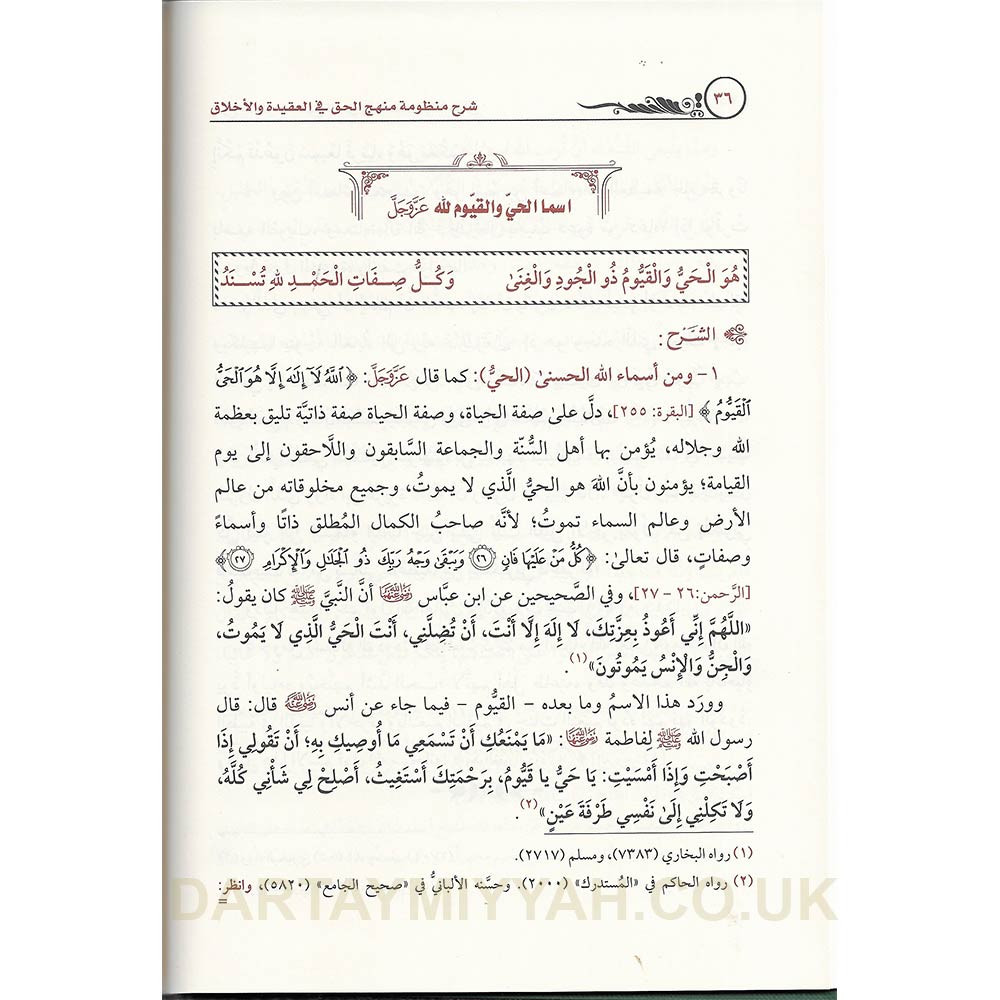 ٣٦
شرح منظومة منهج الحق في العقيدة والأخلاق
اسما الحيّ والقيّوم لله عَزَّوَجَلَّ
هُوَ الْحَيُّ وَالْقَيُّومُ ذُو الْجُودِ وَالْغِنَىٰ وَكُلُّ صِفَاتِ الْحَمْدِ لِلهِ تُسْنَدُ
الشَّرح:
١- ومن أسماء الله الحسنىٰ (الحيُّ): كما قال عَزَّوَجَلَّ: ﴿ٱللَّهُ لَآ إِلَٰهَ إِلَّا هُوَ ٱلْحَىُّ
ٱلْقَيُّومُ﴾ [البقرة: ٢٥٥]، دلَّ علىٰ صفة الحياة، وصفة الحياة صفة ذاتيَّة تليق بعظمة
الله وجلاله، يُؤمن بها أهل السُّنَّة والجماعة السَّابقون واللَّاحقون إلىٰ يوم
القيامة؛ يؤمنون بأنَّ اللهَ هو الحيُّ الَّذي لا يموتُ، وجميع مخلوقاته من عالم
الأرض وعالم السماء تموتُ؛ لأنَّه صاحبُ الكمال المُطلق ذاتًا وأسماءً
وصفاتٍ، قال تعالىٰ: ﴿كُلُّ مَنْ عَلَيْهَا فَانٍ ٢٦ وَيَبْقَىٰ وَجْهُ رَبِّكَ ذُو ٱلْجَلَٰلِ وَٱلْإِكْرَامِ ٢٧﴾
[الرَّحمن:٢٦ - ٢٧]، وفي الصَّحيحين عن ابن عبَّاس رَضِيَ اللَّهُ عَنْهُمَا أنَّ النَّبيَّ ﷺ كان يقولُ:
«اللَّهُمَّ إِنِّي أَعُوذُ بِعِزَّتِكَ، لَا إِلَهَ إِلَّا أَنْتَ، أَنْ تُضِلَّنِي، أَنْتَ الْحَيُّ الَّذِي لَا يَمُوتُ،
وَالْجِنُّ وَالْإِنْسُ يَمُوتُونَ»(١).
وورَد هذا الاسمُ وما بعده - القيُّوم - فيما جاء عن أنس رَضِيَ اللَّهُ عَنْهُ قال: قال
رسول الله ﷺ لفاطمة رَضِيَ اللَّهُ عَنْهَا: «مَا يَمْنَعُكِ أَنْ تَسْمَعِي مَا أُوصِيكِ بِهِ؛ أَنْ تَقُولِي إِذَا
أَصْبَحْتِ وَإِذَا أَمْسَيْتِ: يَا حَيُّ يا قَيُّومُ، بِرَحْمَتِكَ أَسْتَغِيثُ، أَصْلِحْ لِي شَأْنِي كُلَّهُ،
وَلَا تَكِلْنِي إِلَىٰ نَفْسِي طَرْفَةَ عَيْنٍ»(٢).
(١) رواه البخاري (٧٣٨٣)، ومسلم (٢٧١٧).
(٢) رواه الحاكم في «المُستدرك» (٢٠٠٠). وحسَّنه الألبانيُّ في «صحيح الجامع» (٥٨٢٠)، وانظر: =
DARTAYMIYYAH.CO.UK